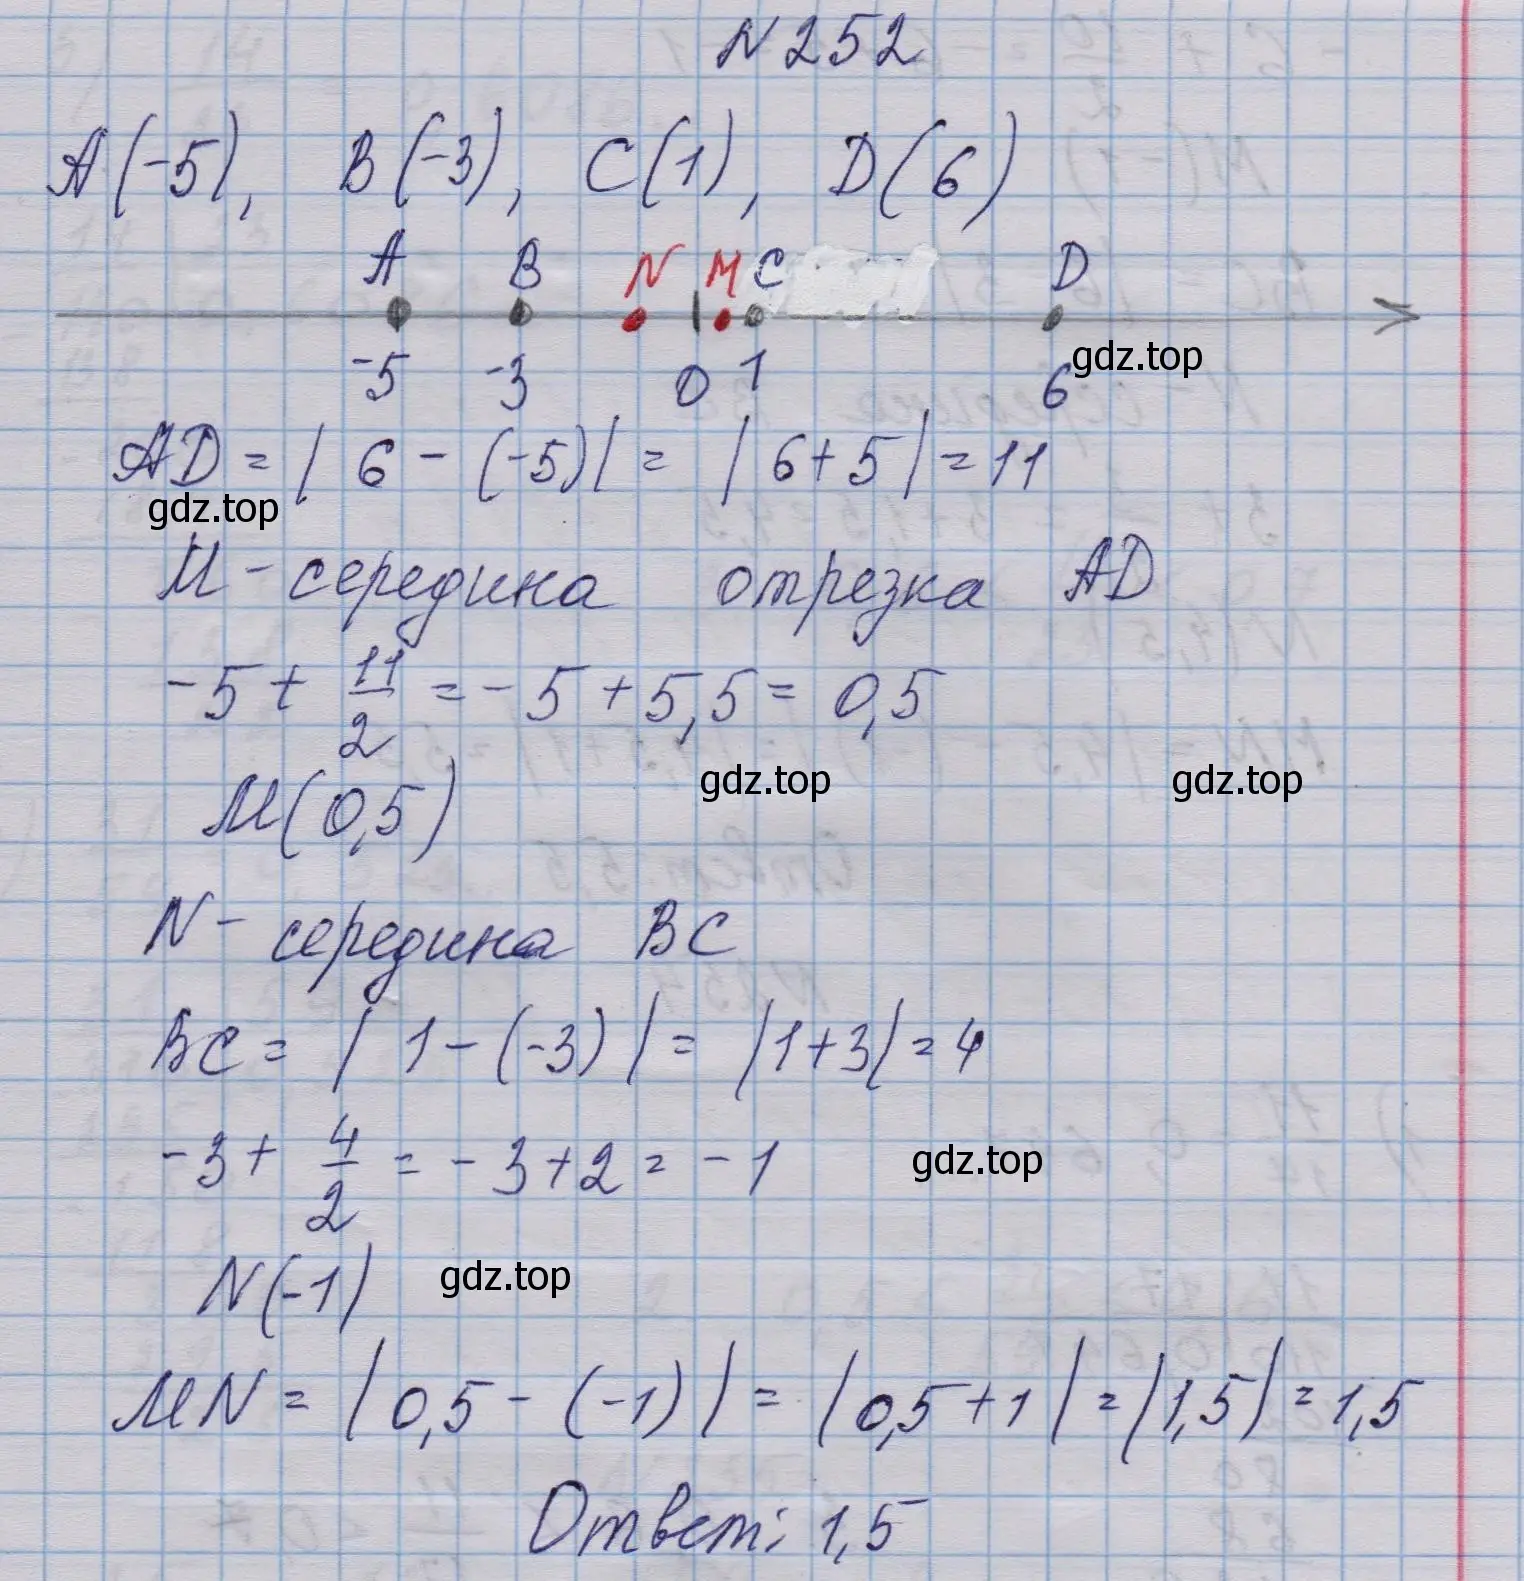 N 252
A(-5), B(-3), C(1), D(6)
A B N M C D
-5 -3 0 1 6
gdz.top
AD = | 6 - (-5)| = | 6+5 | = 11
gdz.top
M - середина отрезка AD
-5 + 11/2 = -5 + 5,5 = 0,5
gdz.top gdz.top
M(0,5)
N - середина BC
BC = | 1 - (-3) | = |1+3| = 4
-3 + 4/2 = -3+2 = -1
gdz.top
N(-1)
gdz.top
MN = | 0,5 - (-1) | = | 0,5 + 1 | = |1,5| = 1,5
Ответ: 1,5